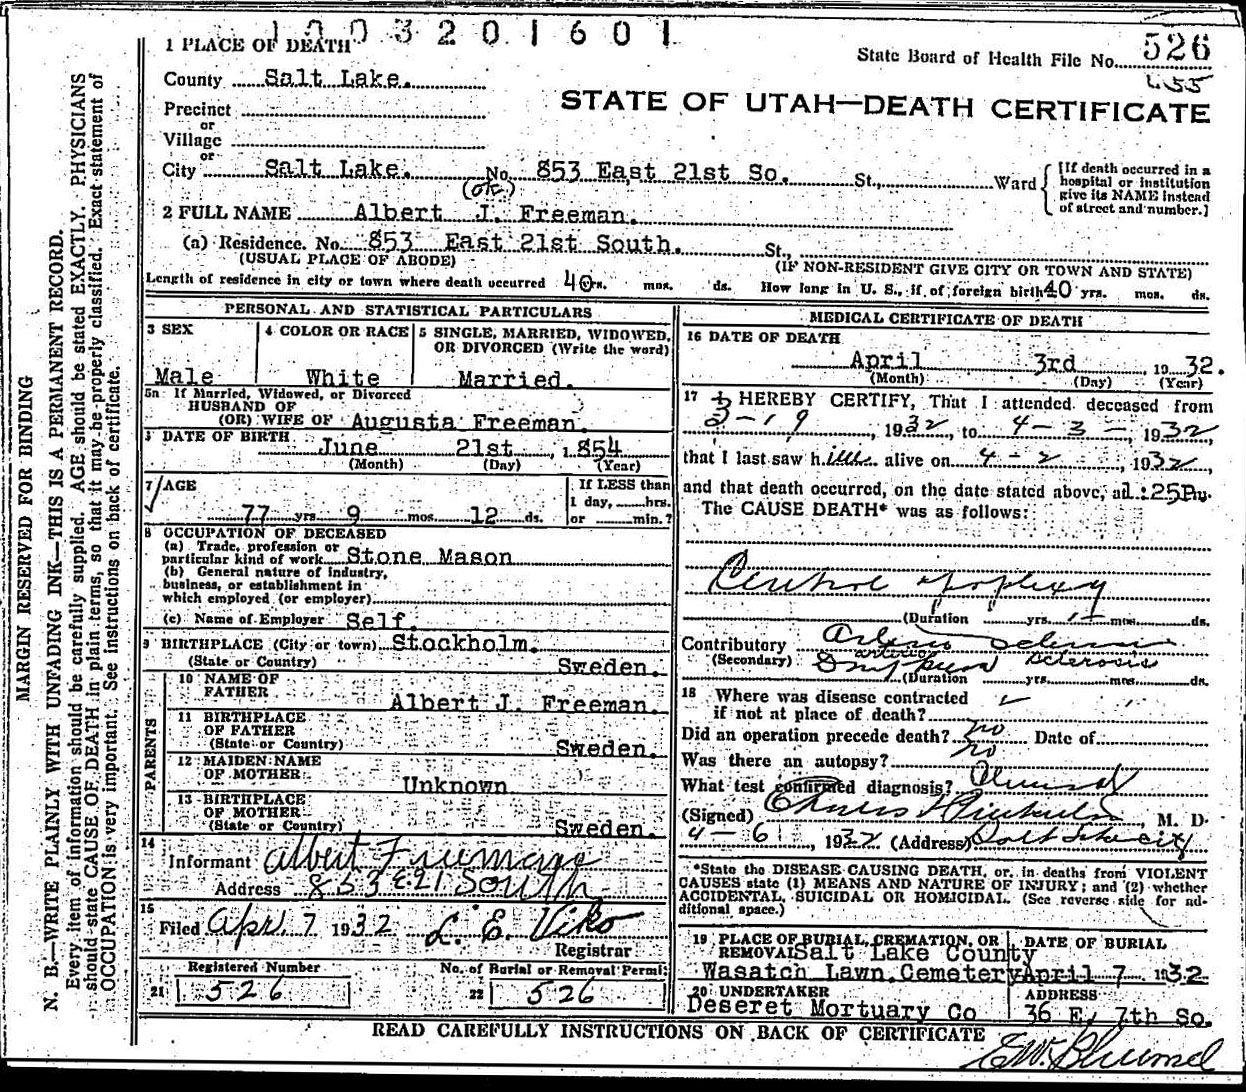 1003201601
1 PLACE OF DEATH
State Board of Health File No. 526
County Salt Lake.
STATE OF UTAH—DEATH CERTIFICATE
Precinct
or
Village
or
City Salt Lake. No. 853 East 21st So. St., Ward
[If death occurred in a hospital or institution give its NAME instead of street and number.]
(ok)
2 FULL NAME Albert J. Freeman.
(a) Residence. No. 853 East 21st South. St.,
(USUAL PLACE OF ABODE) (IF NON-RESIDENT GIVE CITY OR TOWN AND STATE)
Length of residence in city or town where death occurred 40 yrs. mos. ds. How long in U. S., if of foreign birth 40 yrs. mos. ds.
PERSONAL AND STATISTICAL PARTICULARS
3 SEX 4 COLOR OR RACE 5 SINGLE, MARRIED, WIDOWED,
OR DIVORCED (Write the word)
Male White Married.
5a If Married, Widowed, or Divorced
HUSBAND OF
(OR) WIFE OF Augusta Freeman.
DATE OF BIRTH
June 21st, 1854
(Month) (Day) (Year)
7 AGE If LESS than
1 day, hrs.
77 yrs 9 mos. 12 ds. or min.?
8 OCCUPATION OF DECEASED
(a) Trade, profession or
particular kind of work Stone Mason
(b) General nature of industry,
business, or establishment in
which employed (or employer)
(c) Name of Employer Self.
9 BIRTHPLACE (City or town) Stockholm.
(State or Country) Sweden.
PARENTS
10 NAME OF
FATHER Albert J. Freeman.
11 BIRTHPLACE
OF FATHER
(State or Country) Sweden.
12 MAIDEN NAME
OF MOTHER Unknown
13 BIRTHPLACE
OF MOTHER
(State or Country) Sweden.
14
Informant Albert Freeman
Address 853 E 21 South
15
Filed Apr. 7 1932 L. E. Viko
Registrar
Registered Number No. of Burial or Removal Permit
21 526 22 526
MEDICAL CERTIFICATE OF DEATH
16 DATE OF DEATH
April 3rd, 1932.
(Month) (Day) (Year)
17 I HEREBY CERTIFY, That I attended deceased from
3-19, 1932, to 4-3-, 1932,
that I last saw him alive on 4-2, 1932,
and that death occurred, on the date stated above, at 1:25Pm.
The CAUSE DEATH* was as follows:
apoplexy
(Duration yrs. mos. ds.
Contributory Arterio Sclerosis
(Secondary) arterio Sclerosis
(Duration yrs. mos. ds.
18 Where was disease contracted
if not at place of death?
Did an operation precede death? no Date of
Was there an autopsy? no
What test confirmed diagnosis?
(Signed) , M. D.
4-6, 1932 (Address) Salt Lake City
*State the DISEASE CAUSING DEATH, or, in deaths from VIOLENT
CAUSES state (1) MEANS AND NATURE OF INJURY; and (2) whether
ACCIDENTAL, SUICIDAL OR HOMICIDAL. (See reverse side for ad-
ditional space.)
19 PLACE OF BURIAL, CREMATION, OR DATE OF BURIAL
REMOVAL Salt Lake County
Wasatch Lawn Cemetery April 7 1932
20 UNDERTAKER ADDRESS
Deseret Mortuary Co 36 E, 7th So.
READ CAREFULLY INSTRUCTIONS ON BACK OF CERTIFICATE
MARGIN RESERVED FOR BINDING
N. B.—WRITE PLAINLY WITH UNFADING INK—THIS IS A PERMANENT RECORD.
Every item of information should be carefully supplied. AGE should be stated EXACTLY. PHYSICIANS
should state CAUSE OF DEATH in plain terms, so that it may be properly classified. Exact statement of
OCCUPATION is very important. See instructions on back of certificate.